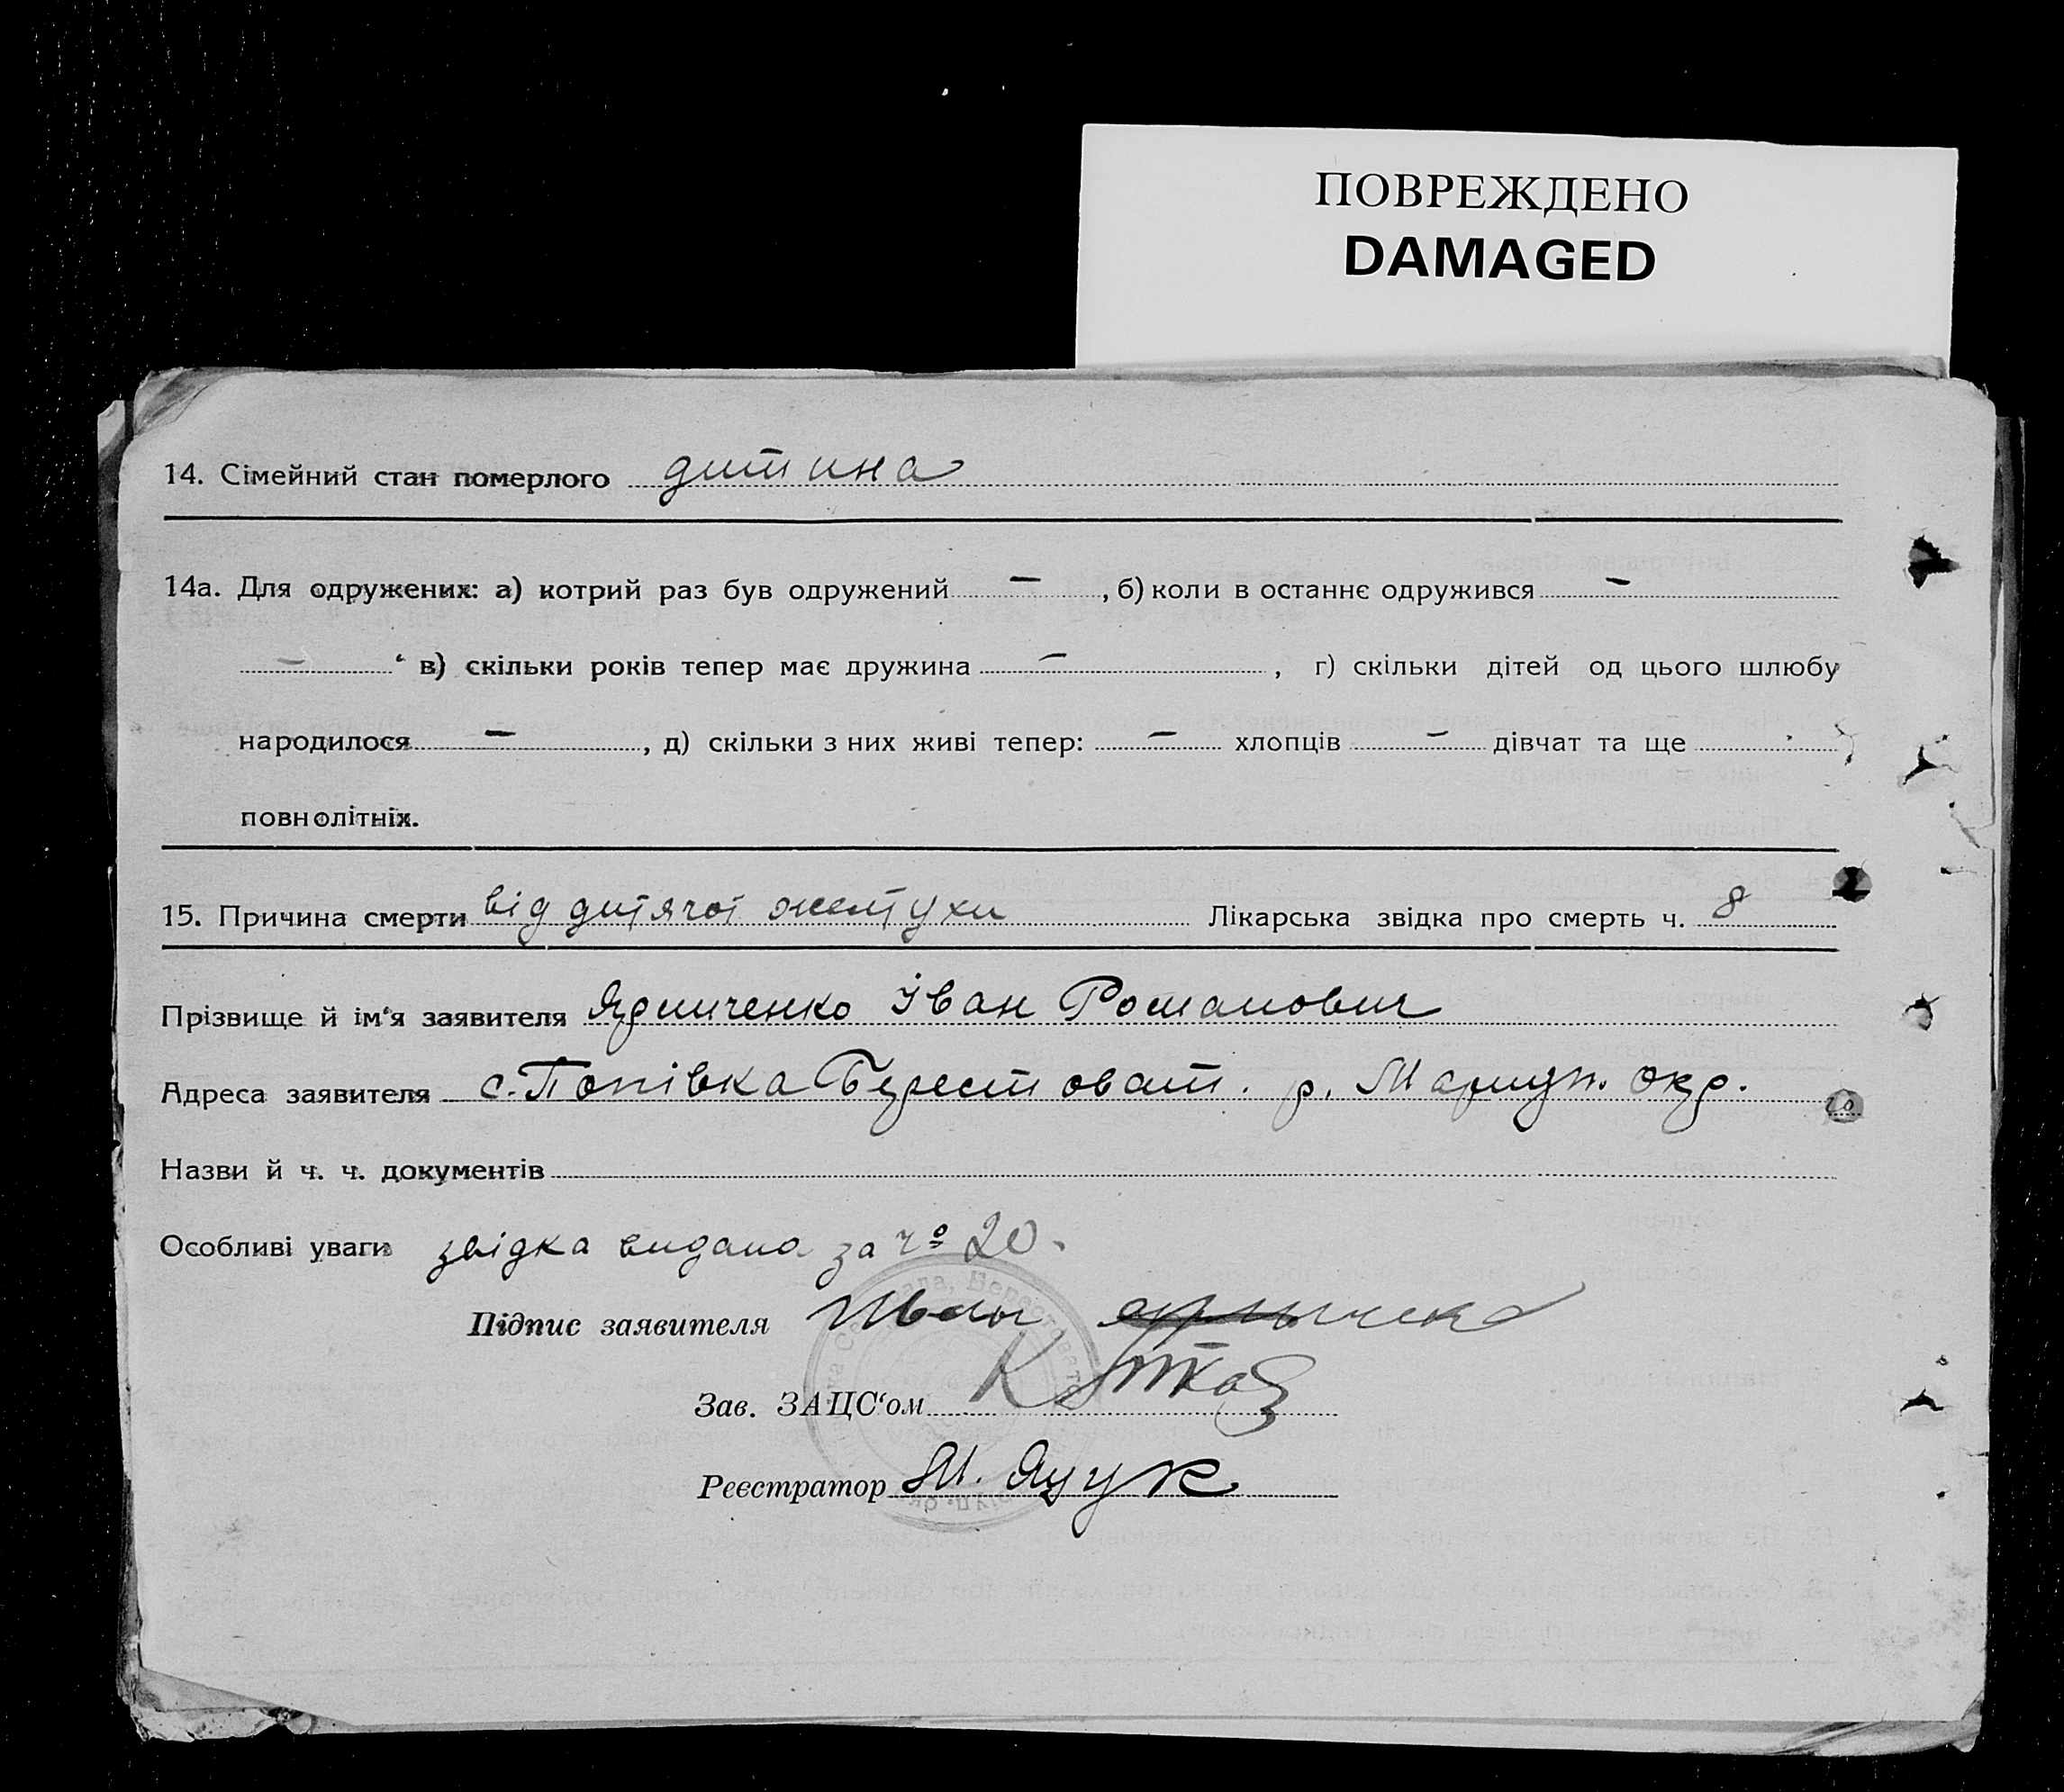 ПОВРЕЖДЕНО
DAMAGED
14. Сімейний стан померлого дитина
14а. Для одружених: а) котрий раз був одружений — , б) коли в останнє одружився —
— ‘ в) скільки років тепер має дружина — , г) скільки дітей од цього шлюбу
народилося — , д) скільки з них живі тепер: — хлопців — дівчат та ще
повнолітніх.
15. Причина смерти від дитячої жовтухи Лікарська звідка про смерть ч. 8
Прізвище й ім‘я заявителя Іван Романович
Адреса заявителя с. Попівка Берестоват. р. Маріуп. окр.
Назви й ч. ч. документів
Особливі уваги звідка видана за ч° 20.
Підпис заявителя Иван
Зав. ЗАЦС‘ом К
Реєстратор М. Яцук